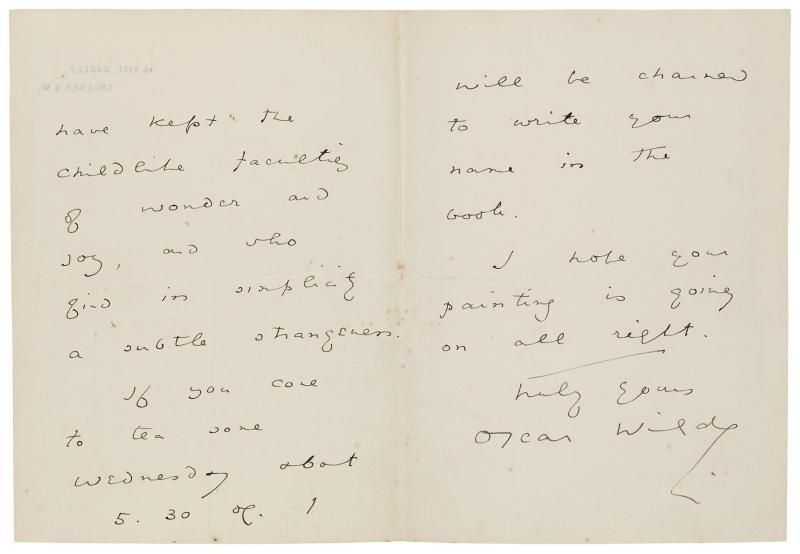 have kept the
childlike faculties
of wonder and
joy, and who
find in simplicity
a subtle strangeness.
If you come
to tea some
Wednesday about
5. 30 oc. I
will be charmed
to write your
name in the
book.
I hope your
painting is going
on all right.
truly yours
Oscar Wilde